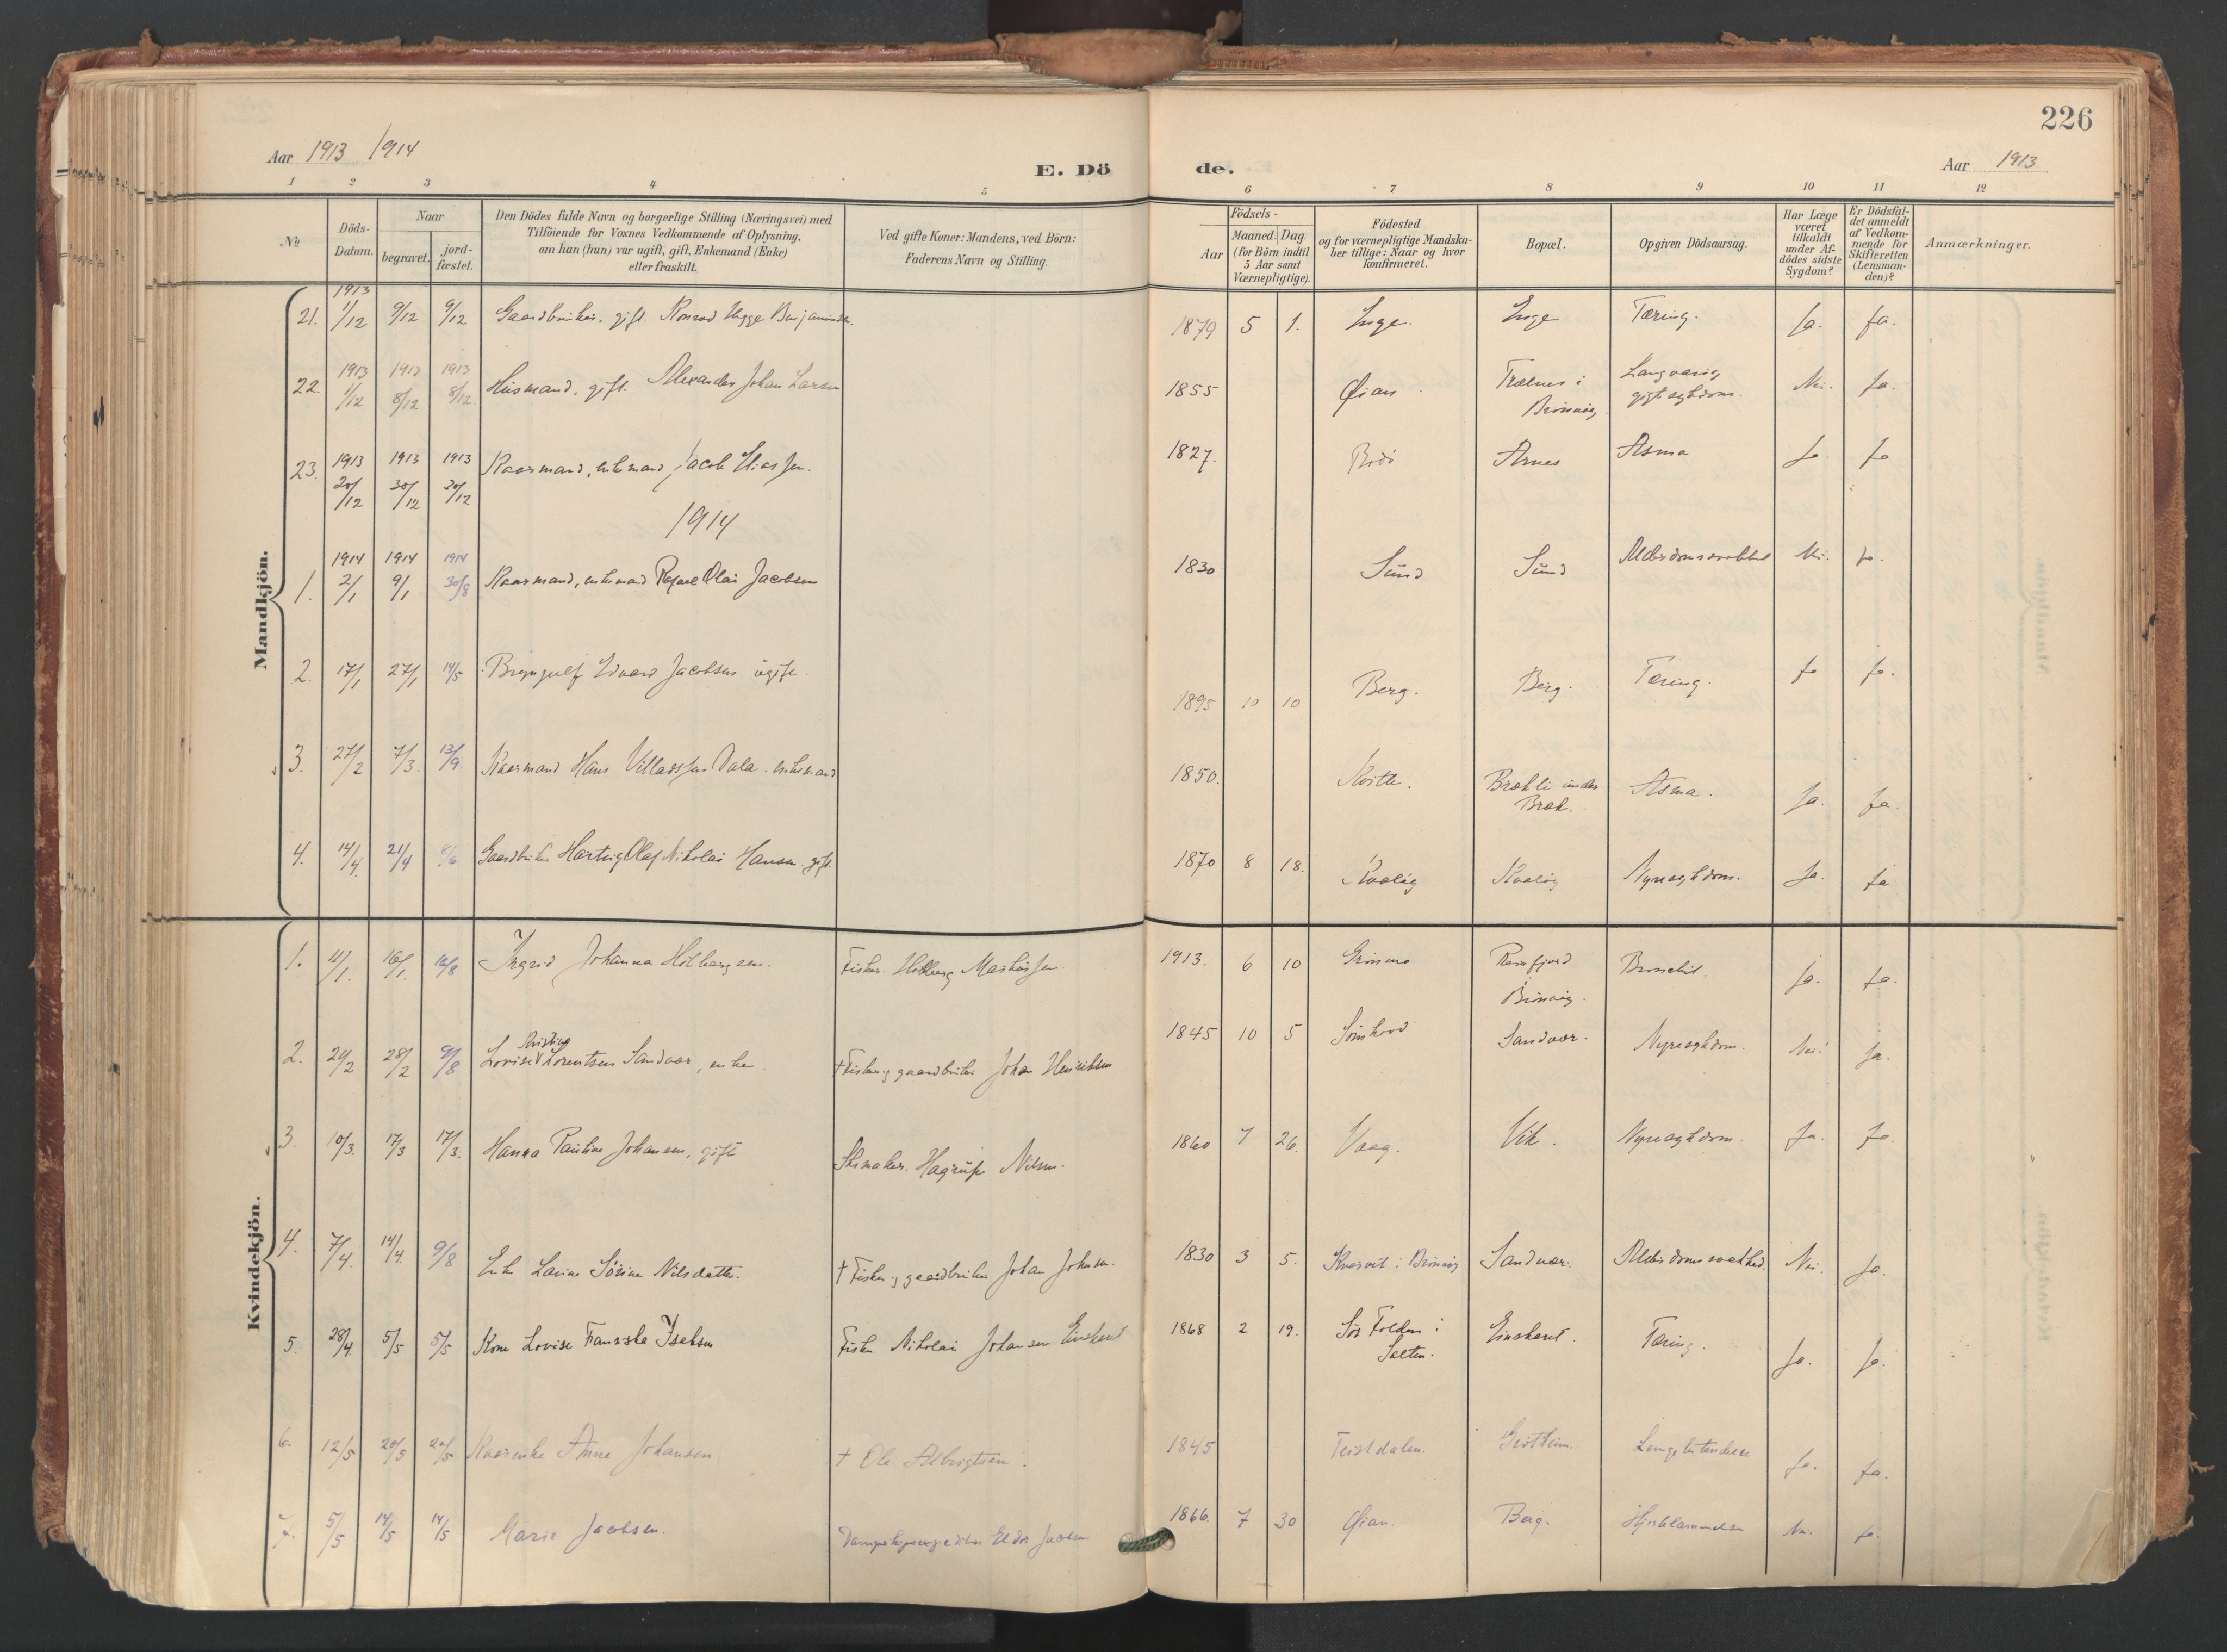 226
Aar 1913 1914
E. Dö
de.
Aar 1913
1 2 3 4 5 6 7 8 9 10 11 12
№
Döds-
Datum.
Naar
begravet.
jord-
fæstet.
Den Dödes fulde Navn og borgerlige Stilling (Næringsvei) med
Tilföiende for Voxnes Vedkommende af Oplysning,
om han (hun) var ugift, gift, Enkemand (Enke)
eller fraskilt.
Ved gifte Koner: Mandens, ved Börn:
Faderens Navn og Stilling.
Födsels-
Aar
Maaned. Dag.
(for Börn indtil
5 Aar samt
Værnepligtige).
Födested
og for værnepligtige Mandska-
ber tillige: Naar og hvor
konfirmeret.
Bopæl.
Opgiven Dödsaarsag.
Har Læge
været
tilkaldt
under Af-
dödes sidste
Sygdom?
Er Dödsfal-
det anmeldt
af Vedkom-
mende for
Skifteretten
(Lensman-
den)?
Anmærkninger.
Mandkjön.
21. 1913 1/12 9/12 9/12 Gaardbruker, gift. 1879 5 1. Tæring. Ja. Ja.
22. 1913 1/12 1913 8/12 1913 8/12 Husmand, gift. Alexander Johan Larsen 1855 Øian Trælnes i
Brönnöy Langvarig
gigtsygdom. Nei. Ja.
23. 1913 20/12 1913 30/12 1913 30/12 Kaarmand, enkemand, Jacob Eliassen. 1827. Bodö Aarnes Asma Ja Ja
1914
1. 1914 2/1 1914 9/1 1914 30/8 Kaarmand, enkemand Rafael Olai Jacobsen 1830 Sund Sund Alderdomssvakhed Nei. Ja.
2. 17/1 27/1 14/5 Brynjulf Edvard Jacobsen ugift. 1895 10 10 Berg. Berg. Tæring. Ja Ja.
3. 27/2 7/3. 13/9 Kaarmand Hans Villadssen Dala. enkemand 1850. Bræk. Asma. Ja. Ja.
4. 14/4. 21/4 8/6 Gaardbruker Hartvig Olaf Nikolai Hansen. gift. 1870 8 18. Kvaløy Kvaløy Nyresygdom. Ja. Ja
Kvindekjön.
1. 11/1. 16/1. 16/8 Ingrid Johanna Holbergsen. Fisker. Holberg Markussen. 1913. 6 10 Grönmo
Brönnöy. Bronchit. Ja. Ja.
2. 20/2 28/2 9/8 Lovise Kristine Lorentsen Sandvær, enke. † Fisker og gaardbruker Johan Henriksen 1845 10 5 Sandvær. Nyresygdom. Nei. Ja.
3. 10/3. 17/3 17/3. Hanna Pauline Johansen, gift Skomaker. Hagrup Nilsen. 1860 7 26. Vaag. Vik. Nyresygdom. Ja. Ja
4. 7/4. 14/4. 9/8 Enke Lavine Sörine Nilsdatter. † Fisker og gaardbruker Johan Johnsen. 1830 3 5. i Brönnöy Sandvær. Alderdomssvakhed Nei. Ja.
5. 28/4. 5/5 5/5 Kone Lovise Franziska Isaksen Fisker Nikolai Johansen Einskaret 1868 2 19. Sör Folden i
Salten. Einskaret. Tæring. Ja. Ja.
6. 12/5 20/5 20/5 Kaarenke Anne Johansen † Ole Albrigtsen. 1845 Teistdalen. Lungebetændelse Ja. Ja.
7. 5/5 14/5 14/5 Marie Jacobsen. Dampskipsexpeditør Eldor Jacobsen 1866. 7 30 Øian. Berg. Hjertelammelse Nei. Ja.